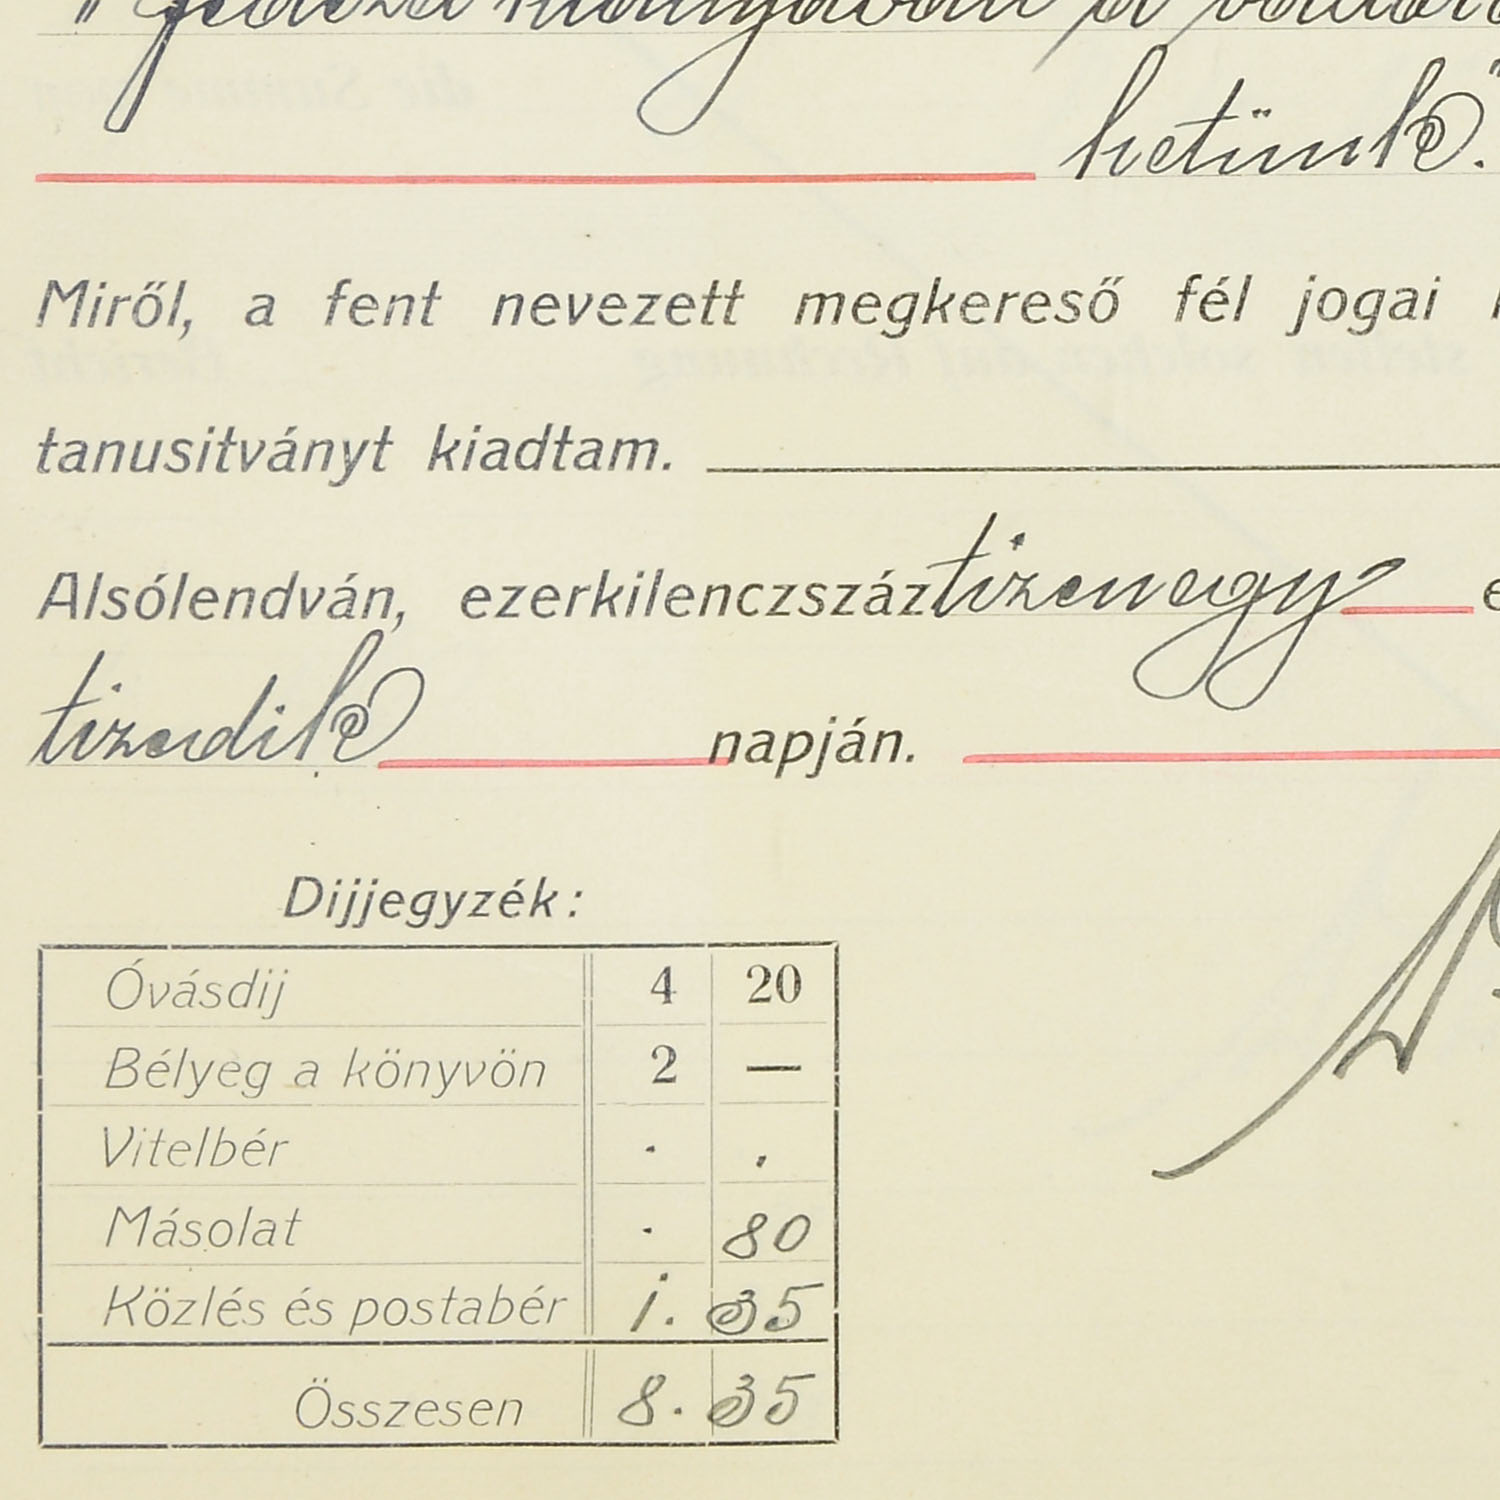 fedezet hiányában a
hetünk."
Miről, a fent nevezett megkereső fél jogai
tanusitványt kiadtam.
Alsólendván, ezerkilenczszáz tizenegy
tizedik napján.
Dijjegyzék:
Óvásdij 4 20
Bélyeg a könyvön 2 —
Vitelbér . .
Másolat . 80
Közlés és postabér 1. 35
Összesen 8. 35